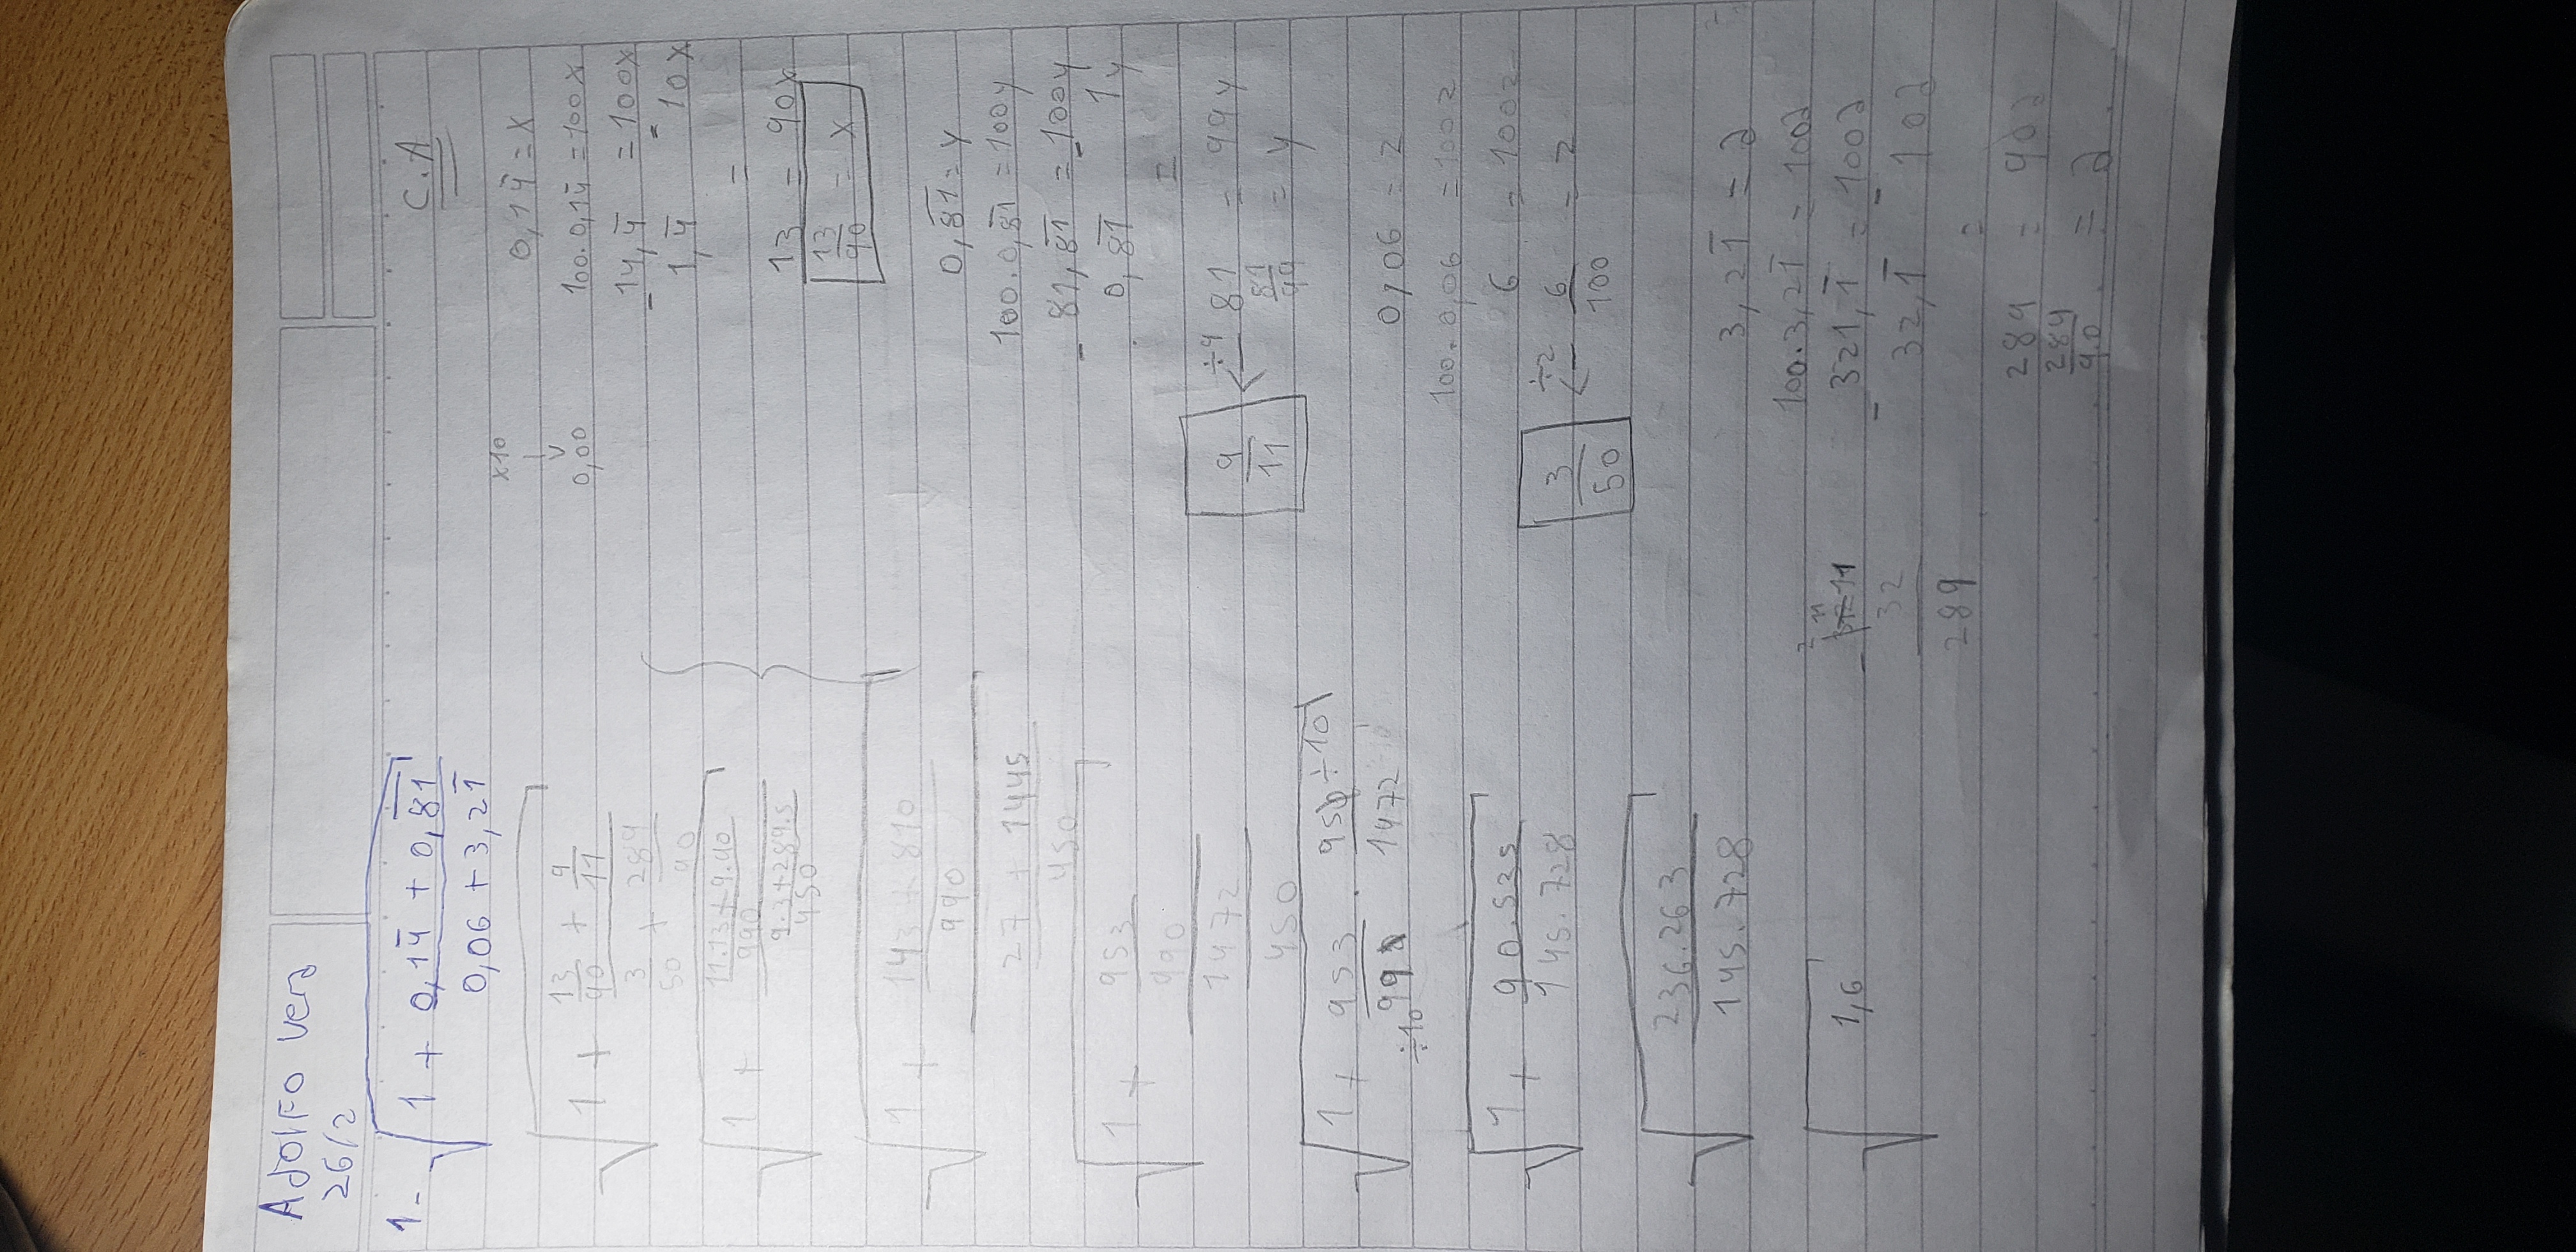 Adolfo Vera
26/2
1- √(1 + (0,14̄ + 0,8̄1̄)/(0,06 + 3,21̄))
√(1 + (13/90 + 9/11)/(3/50 + 289/90))
√(1 + ((11.13+9.90)/990)/((9.3+289.5)/450))
√(1 + ((143 + 810)/990)/((27 + 1445)/450))
√(1 + (953/990)/(1472/450))
√(1 + 953/990 . 950/1472)
÷10
÷10
√(1 + 90.535/145.728)
√(236.263/145.728)
√1,6
C.A
x10
↓
0,00
0,14̄ = x
100.0,14̄ = 100x
- 14,4̄ = - 100x
1,4̄ 10x
=
13 = 90x
13/90 = x
0,8̄1̄ = y
100.0,8̄1̄ = 100y
- 81,8̄1̄ = - 100y
0,8̄1̄ 1y
=
9/11 ← ÷9 81 = 99y
81/99 = y
0,06 = z
100.0,06 = 100z
6 = 100z
3/50 ← ÷2 6/100 = z
3,21̄ = a
100.3,21̄ = 100a
- 321,1̄ = - 100a
32,1̄ 10a
=
289 = 90a
289/90 = a
2 11
- 11
32
289